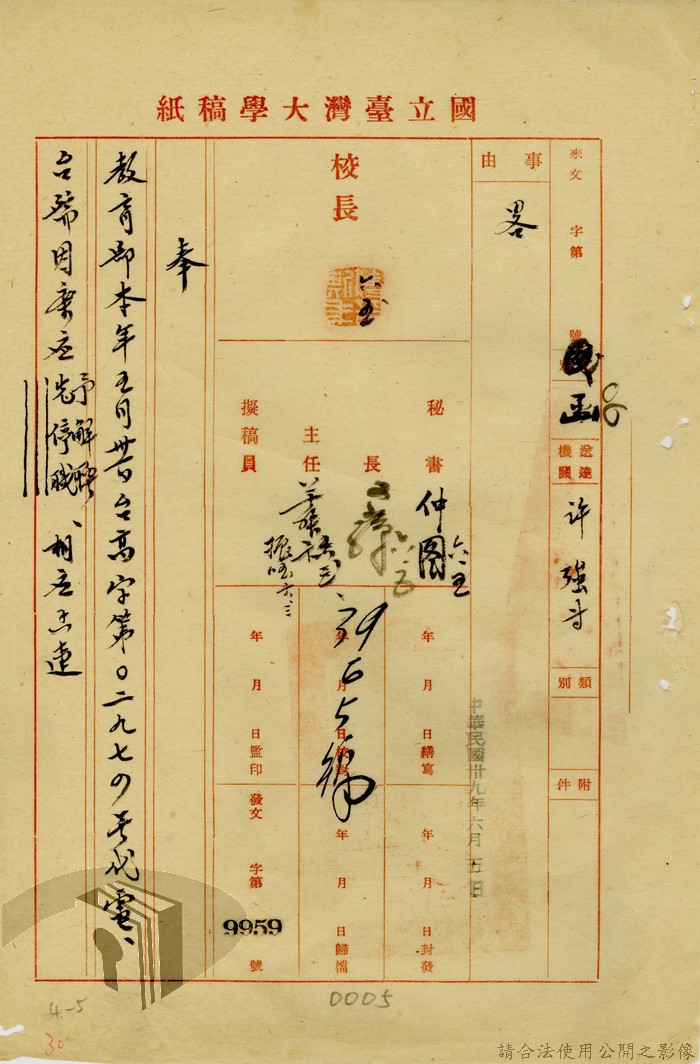 國立臺灣大學稿紙
來文 字第 號
代
函
送達機關
許強等
類別
附件
事由
畧
校長
六.五
秘書
仲圖
六.五
長
主任
擬稿員
年 月 日繕寫
年 月 日校對
年 月 日監印
年 月 日封發
年 月 日歸檔
發文 字第 9959 號
中華民國卅九年六月五日
奉
教育部本年五月卅日台高字第0二九七四号代電、
台端因案应先停職
予解聘、相应志達
0005
4-5
30
請合法使用公開之影像